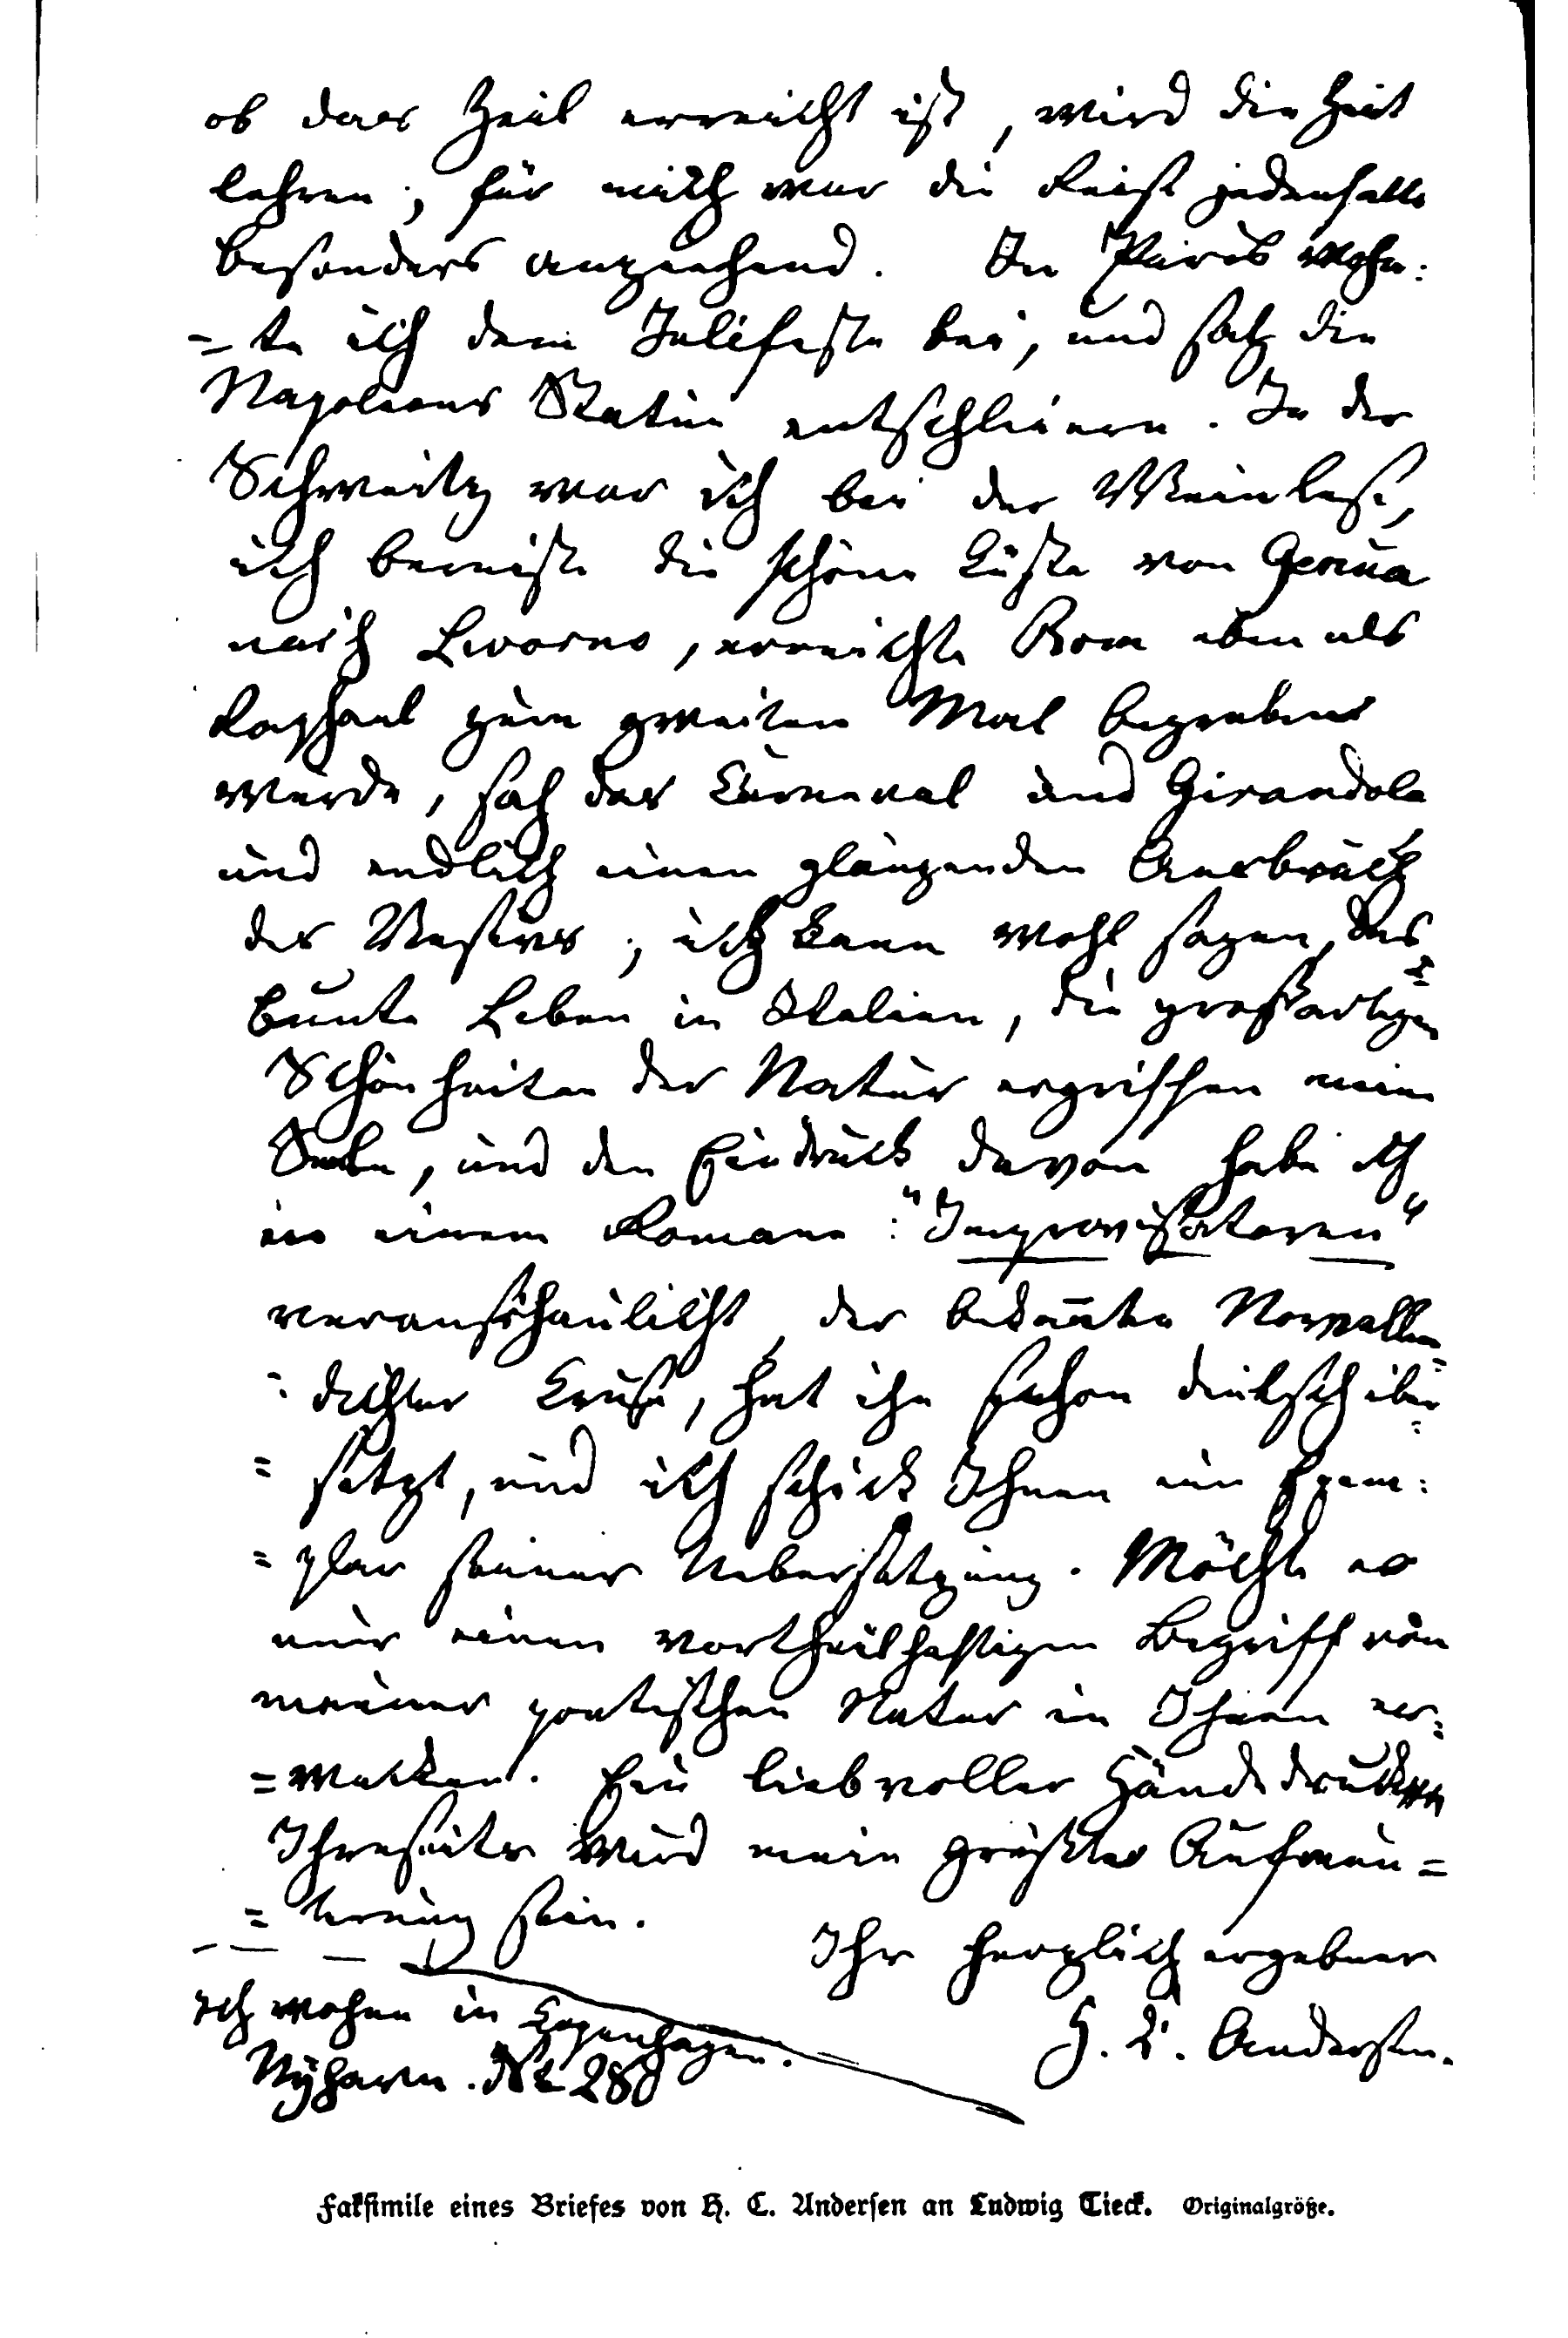 ob das Zeil erreicht ist, wird die Zeit
lehren; für mich war die Reise jedenfalls
besonders anziehend. In Paris wohn:
=te ich dem Julifeste bei, und sah die
Napoleons Statüe entschleiern. In der
Schweitz war ich bei der Weinlese,
ich bereiste die schöne Küste von Genua
nach Livorno, erreichte Rom eben als
Raphael zum zweiten Mal begraben
wurde, sah das Carneval und Girandola
und endlich einen glänzenden Ausbruch
des Vesuvs; ich kann wohl sagen, das
bunte Leben in Italien, die großartigen
Schönheiten der Natur ergriffen meine
Seele, und den Eindruck davon habe ich
in einem Romane: "Improvisatoren"
veranschaulicht, der bekannte Novellen=
=dichter Kruse, hat ihn schon deutsch über=
=setzt, und ich schick Ihnen ein Exem:
=plar seiner Uebersetzung. Möchte es
mir einen vortheilhaftigen Begriff von
meiner poetischen Natur in Ihnen er=
=wecken. Ein liebvoller Händedruck
Ihrseits wird mein größter Aufmun=
=terung sein.
Ihr herzlich ergebner
H. C. Andersen.
ich wohne in Copenhagen.
Nÿhavn. Nr 280
Faksimile eines Briefes von H. C. Andersen an Ludwig Tieck. Originalgröße.